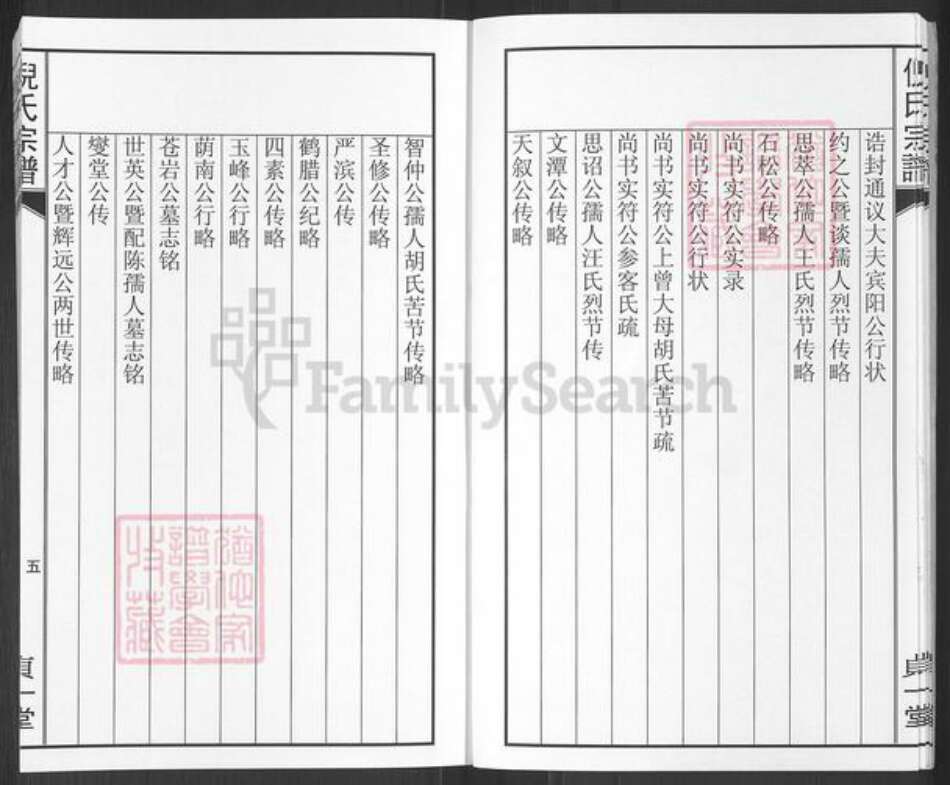 诰封通议大夫宾阳公行状
约之公暨谈孺人烈节传略
思萃公孺人王氏烈节传略
石松公传略
尚书实符公实录
尚书实符公行状
尚书实符公上曾大母胡氏苦节疏
尚书实符公参客氏疏
思诏公孺人汪氏烈节传
文潭公传略
天叙公传略
智仲公孺人胡氏苦节传略
圣修公传略
严滨公传
鹤腊公纪略
四素公传略
玉峰公行略
荫南公行略
苍岩公墓志铭
世英公暨配陈孺人墓志铭
燮堂公传
人才公暨辉远公两世传略
倪氏宗谱
五
貞一堂
倪氏宗譜
貞一堂
FamilySearch
譜學會
收藏